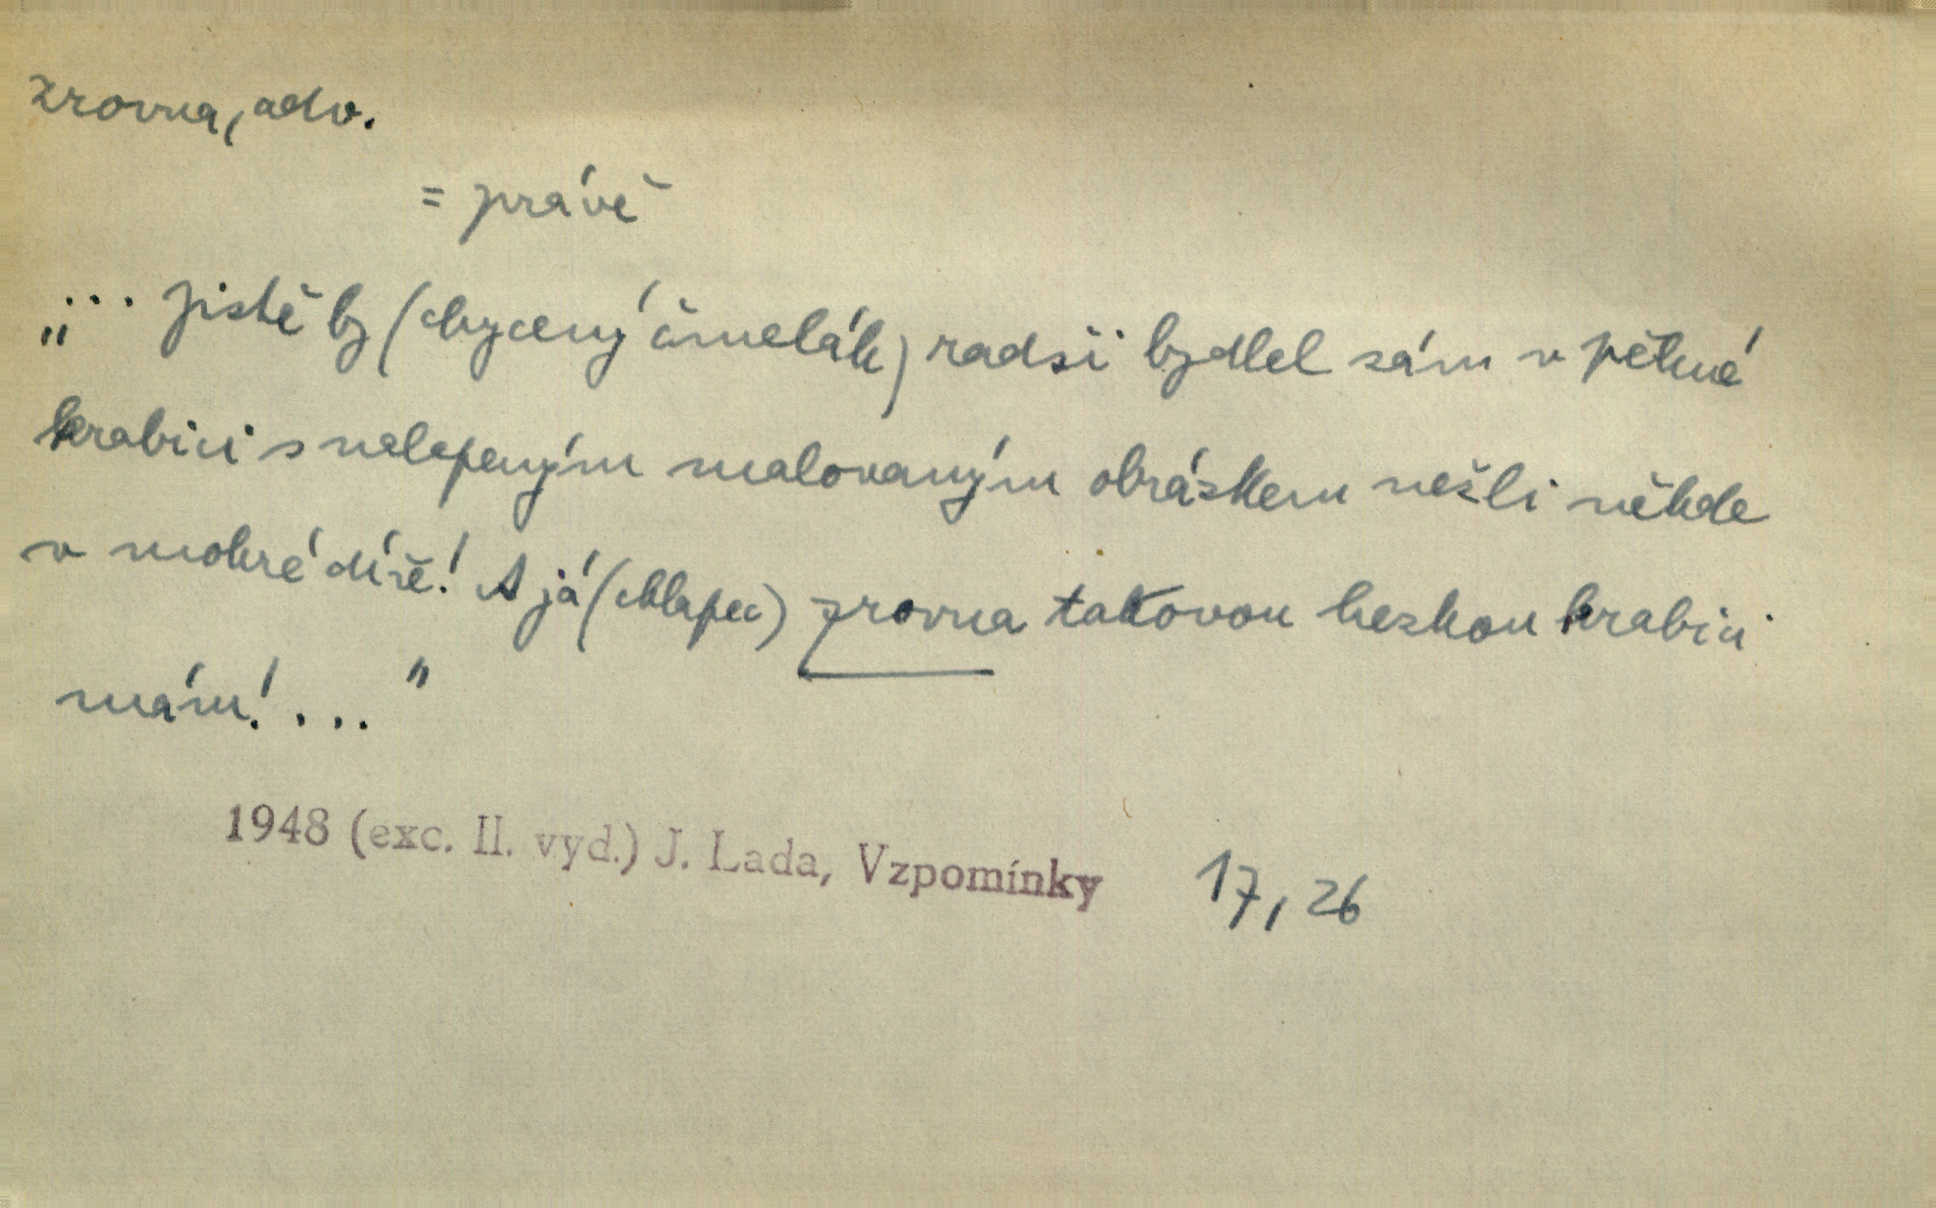 zrovna, adv.
= právě
„... jistě by (chycený čmelák) radši bydlel sám v pěkné
krabici s nalepeným malovaným obrázkem nežli někde
v mokré díře! A já (chlapec) zrovna takovou hezkou krabici
mám! ..."
1948 (exc. II. vyd.) J. Lada, Vzpomínky 17, 26